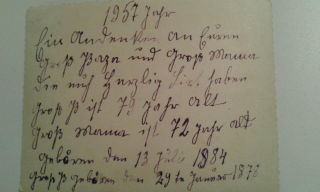 1957 Jahr
Ein Andenken an Euren
Groß Papa und Groß Mama
die euch Herzlig Lieb haben
Groß P ist 79 Jahr alt
Groß Mama ist 72 Jahr alt
Geboren den 13 Juli 1884
Groß P Geboren den 29te Januar 1878